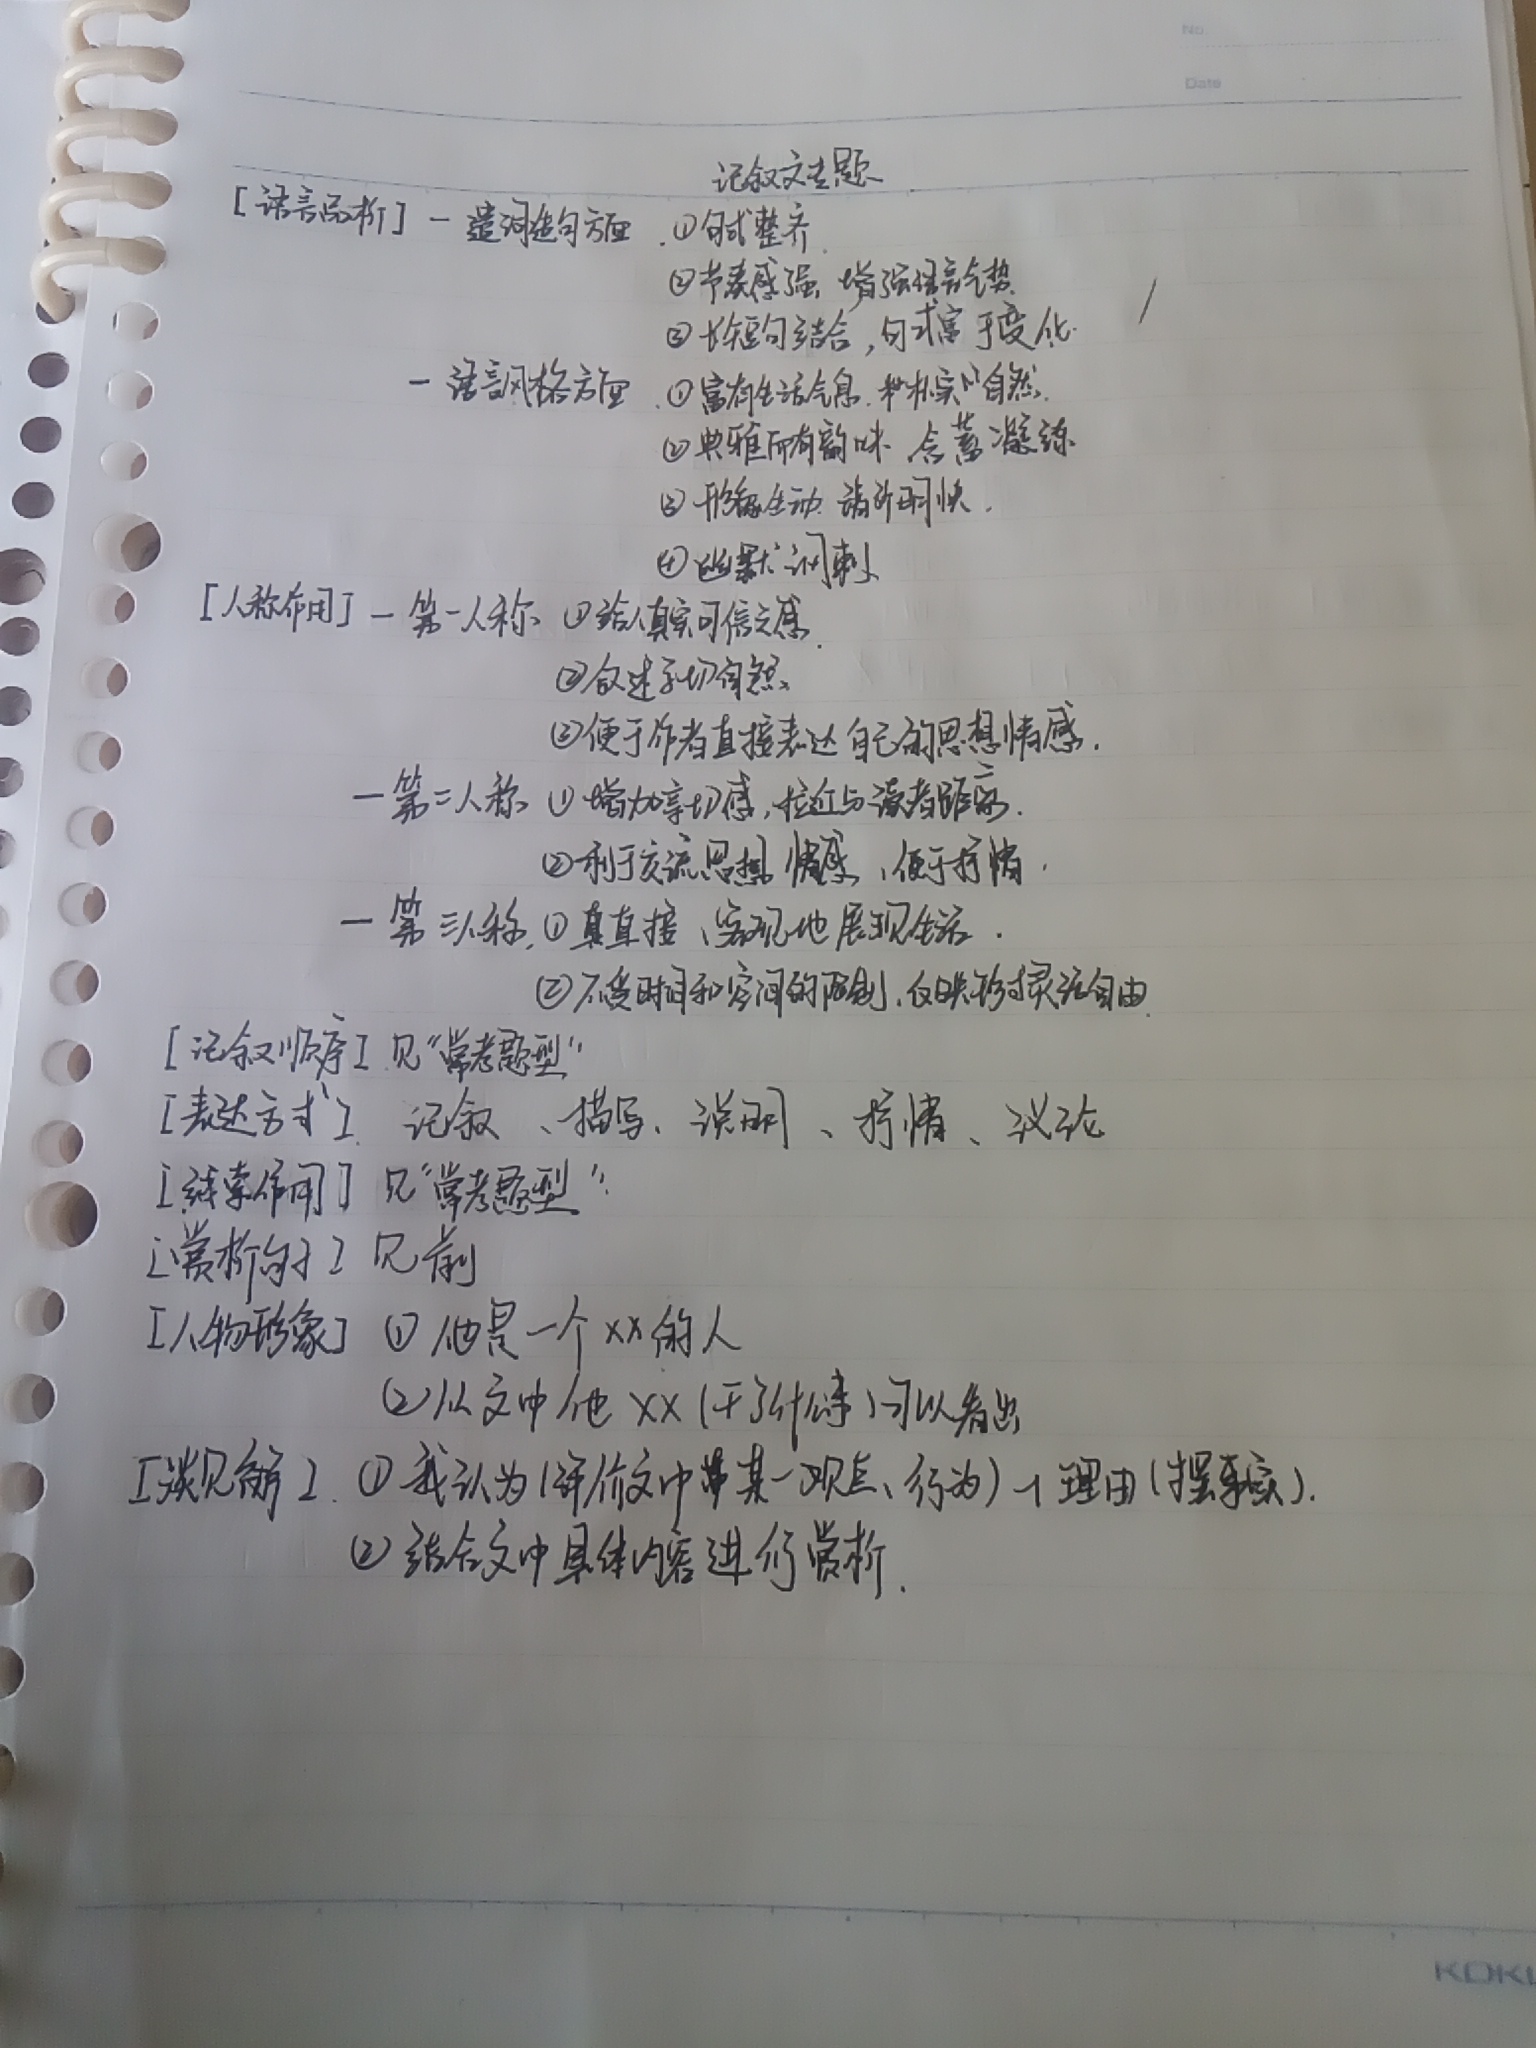 No.
Date
记叙文专题
[语言品析] — 遣词造句方面 . ①句式整齐
②节奏感强、增强语言气势.
③长短句结合,句式富于变化.
— 语言风格方面 . ①富有生活气息. 朴实自然.
②典雅而有韵味、含蓄凝练
③形象生动 清新明快.
④幽默讽刺
[人称作用] — 第一人称 ①给人真实可信之感.
②叙述亲切自然、
③便于作者直接表达自己的思想情感.
— 第二人称 ①增加亲切感,拉近与读者距离.
②利于交流思想情感、便于抒情.
— 第三人称. ①直接、客观地展现生活.
②不受时间和空间的限制、灵活自由
[记叙顺序] 见“常考题型”
[表达方式]. 记叙、描写、说明、抒情、议论
[线索作用] 见“常考题型”.
[赏析句子] 见前
[人物形象] ①他是一个xx的人
②从文中他xx(干了什么事)可以看出
[谈见解]. ①我认为(评价文中某一观点、行为)+理由(摆事实).
②结合文中具体内容进行赏析.